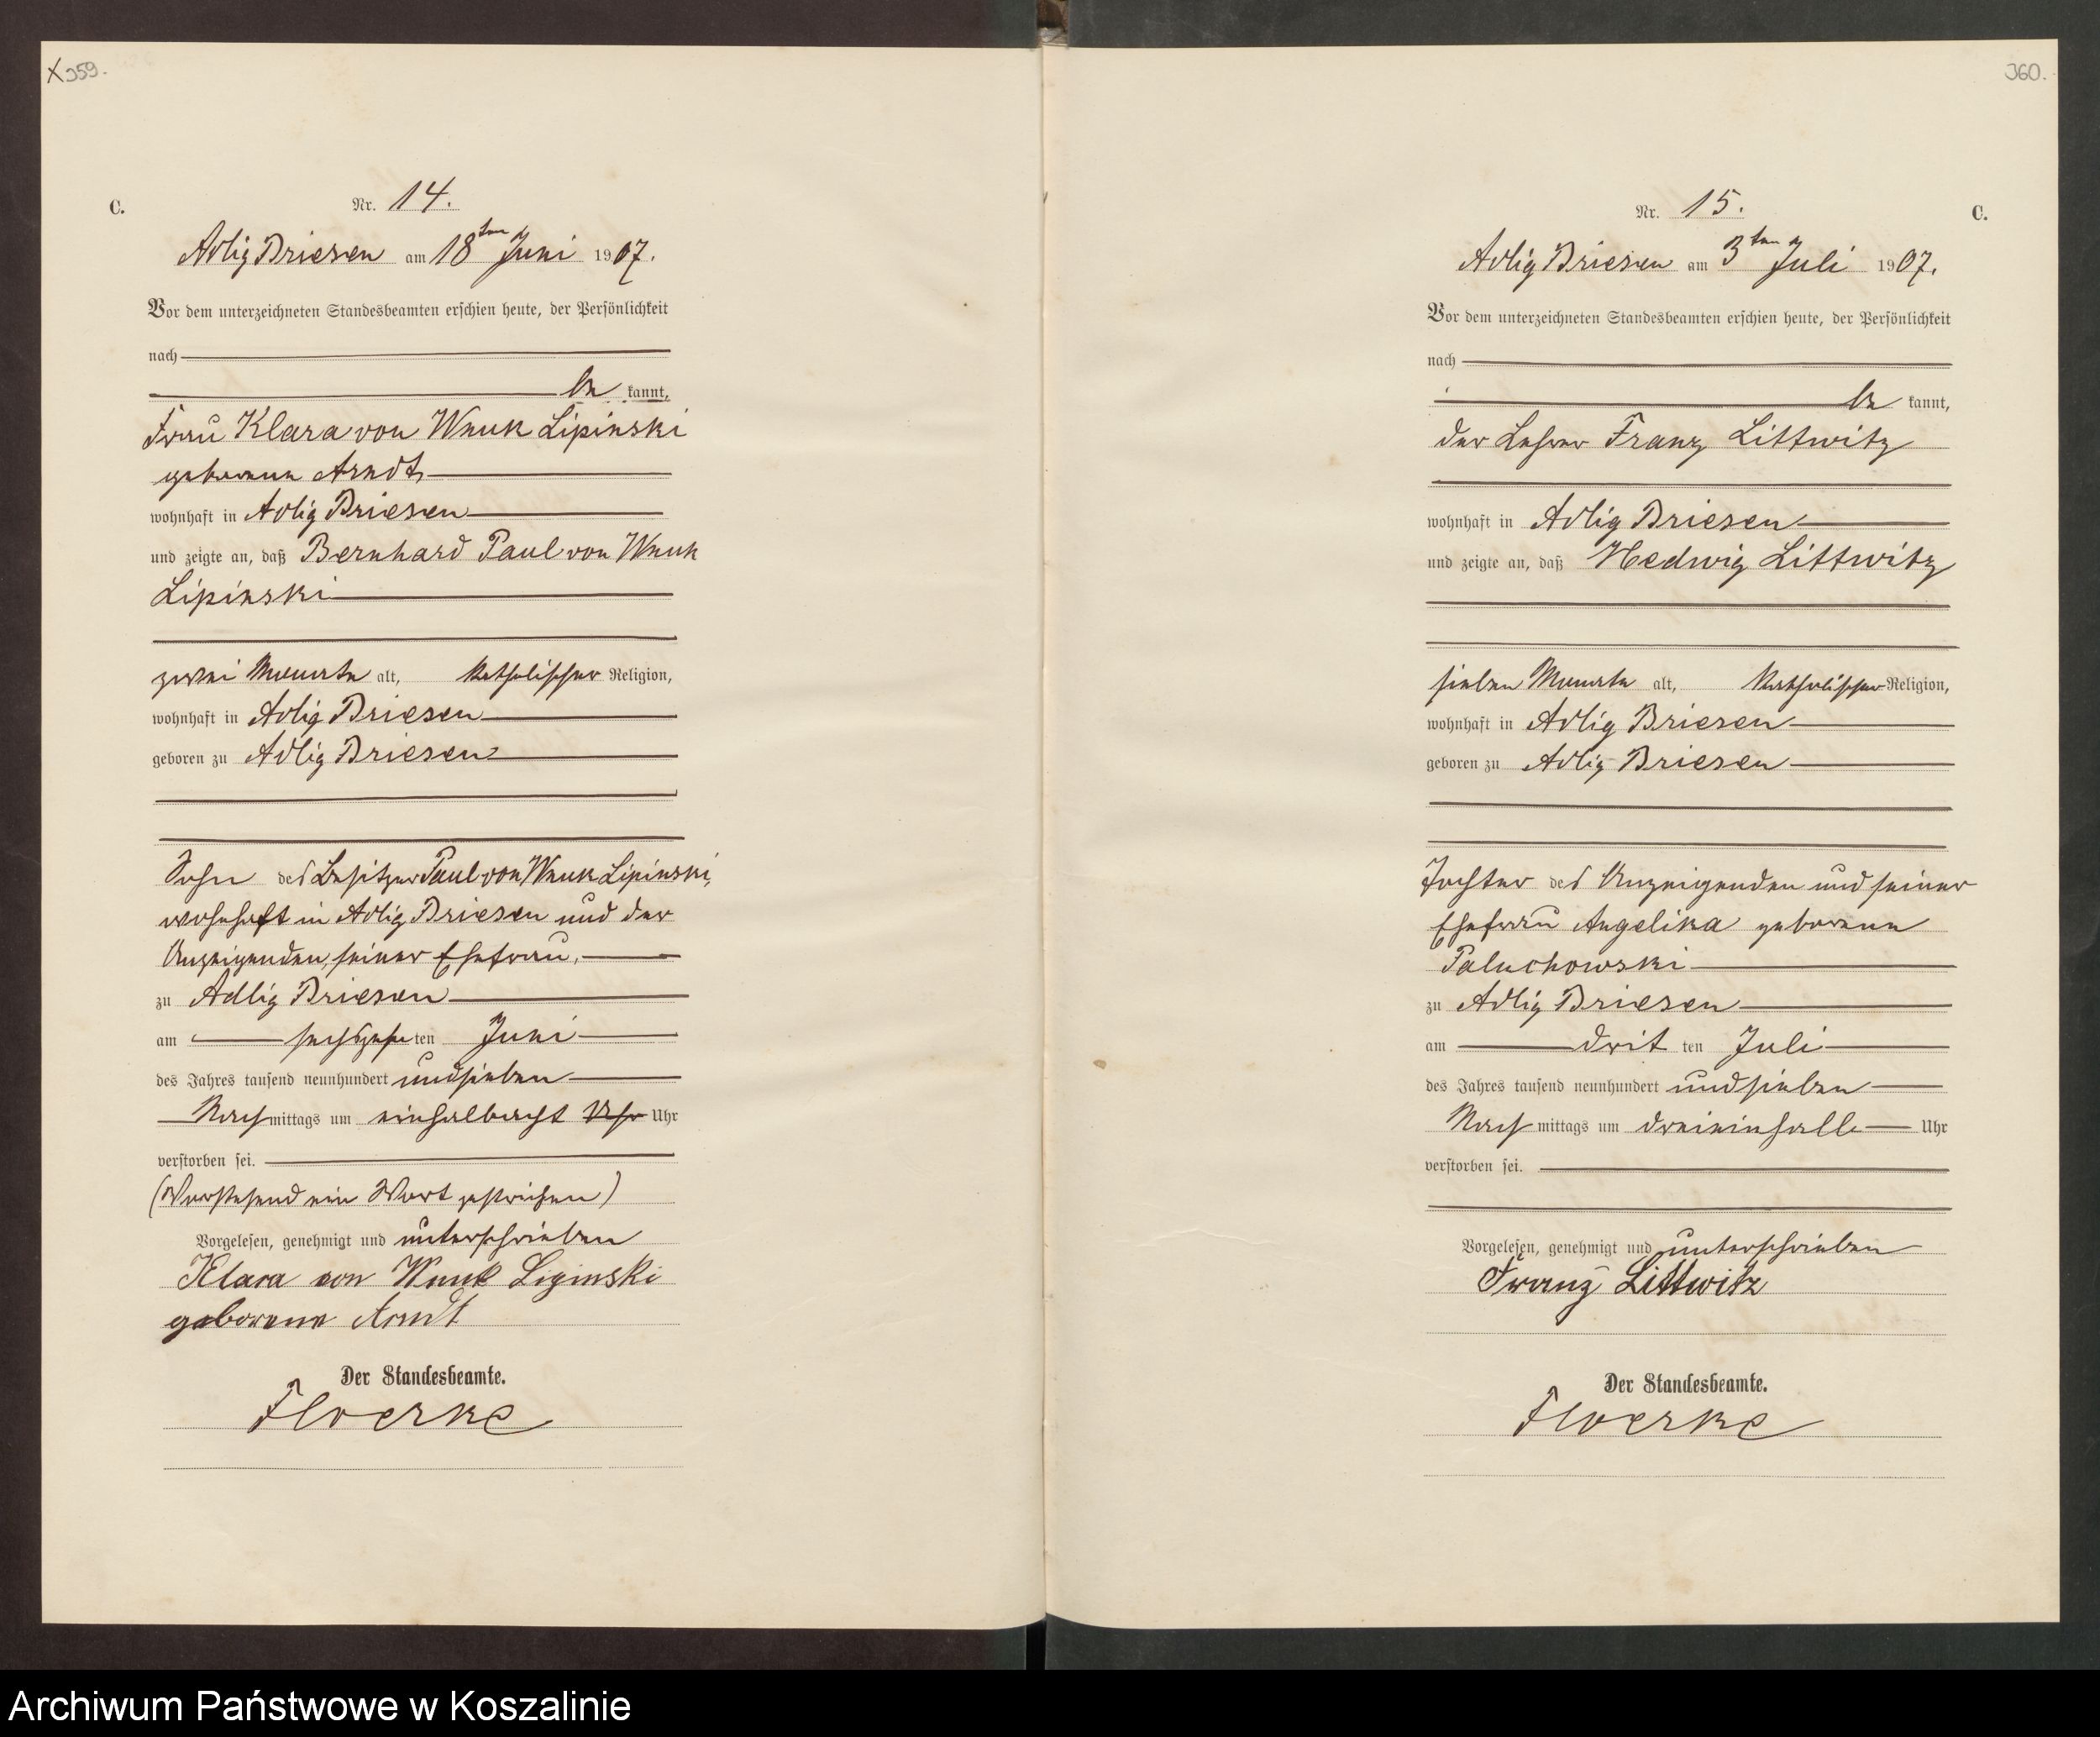 X 359.
C.
Nr. 14.
Adlig Briesen am 18ten Juni 1907.
Vor dem unterzeichneten Standesbeamten erschien heute, der Persönlichkeit
nach
be kannt,
Frau Klara von Wnuk Lipinski
geborene Arndt
wohnhaft in Adlig Briesen
und zeigte an, daß Bernhard Paul von Wnuk
Lipinski
zwei Monate alt, katholischer Religion,
wohnhaft in Adlig Briesen
geboren zu Adlig Briesen
Sohn des Besitzer Paul von Wnuk Lipinski,
wohnhaft in Adlig Briesen und der
Anzeigenden, seiner Ehefrau,
zu Adlig Briesen
am sechszehnten Juni
des Jahres tausend neunhundert und sieben
Nachmittags um einhalbacht Uhr Uhr
verstorben sei.
(Vorstehend ein Wort gestrichen)
Vorgelesen, genehmigt und unterschrieben
Klara von Wnuk Lipinski
geborene Arndt
Der Standesbeamte.
Floerke
360.
Nr. 15.
C.
Adlig Briesen am 3ten Juli 1907.
Vor dem unterzeichneten Standesbeamten erschien heute, der Persönlichkeit
nach
be kannt,
der Lehrer Franz Littwitz
wohnhaft in Adlig Briesen
und zeigte an, daß Hedwig Littwitz
sieben Monate alt, katholischer Religion,
wohnhaft in Adlig Briesen
geboren zu Adlig Briesen
Tochter des Anzeigenden und seiner
Ehefrau Angelika geborene
Paluchowski
zu Adlig Briesen
am drit ten Juli
des Jahres tausend neunhundert und sieben
Nach mittags um dreieinhalb Uhr
verstorben sei.
Vorgelesen, genehmigt und unterschrieben
Franz Littwitz
Der Standesbeamte.
Floerke
Archiwum Państwowe w Koszalinie